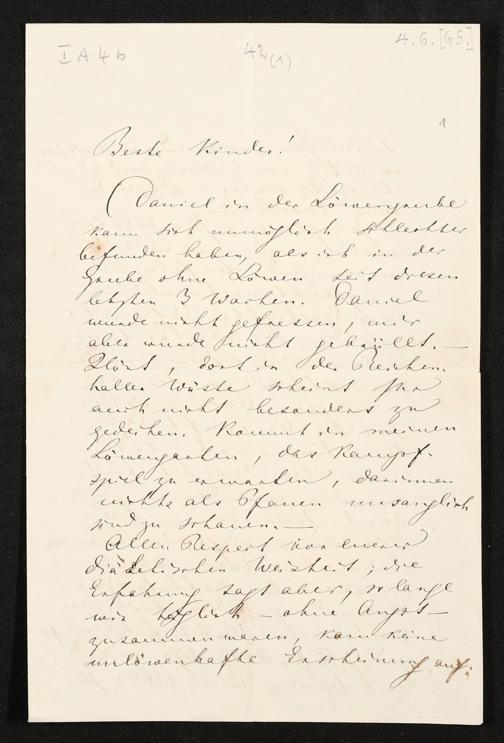 I A 4 b
42 (1)
4.6.[65.]
1
Beste Kinder!
Daniel in der Löwengrube
kann sich unmöglich schlechter
befunden haben, als ich in der
Grube ohne Löwen seit diesen
letzten 3 Wochen. Daniel
wurde nicht gefressen, mir
aber wurde nicht gebrüllt. —
Hört, dort in der Reichen-
haller Wüste scheint Ihr
auch nicht besonders zu
gedeihen. Kommt in meinen
Löwengarten, das Kampf-
spiel zu erwarten, darinnen
nichts als Pfauen
sind zu schauen. —
Allen Respect vor euerer
diätetischen Weisheit; die
Erfahrung sagt aber, so lange
wir täglich — ohne Angst —
zusammen waren, kam keine
unlöwenhafte Erscheinung auf.